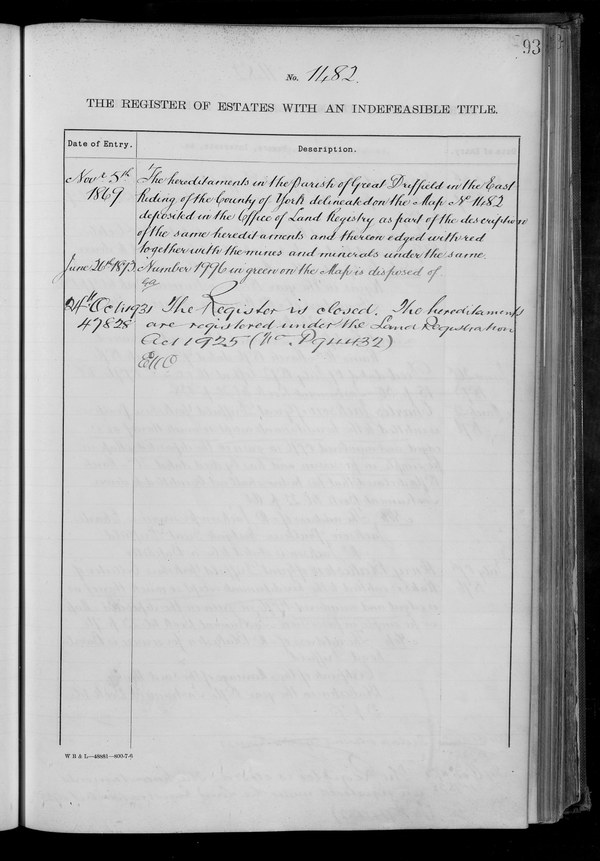 93
No. 1482.
THE REGISTER OF ESTATES WITH AN INDEFEASIBLE TITLE.
Date of Entry.
Description.
Novr 5th
1869
The hereditaments in the Parish of Great Driffield in the East
Riding of the County of York delineated on the Map No 1482
deposited in the Office of Land Registry as part of the description
of the same hereditaments and thereon edged with red
together with the mines and minerals under the same.
June 26th 1873.
Number 1996 in green on the Map is disposed of
24th Oct 1931
47828
The Register is closed. The hereditaments
are registered under the Land Registration
Act 1925 (No. P94432)
W B & L.—48881—800-7-6